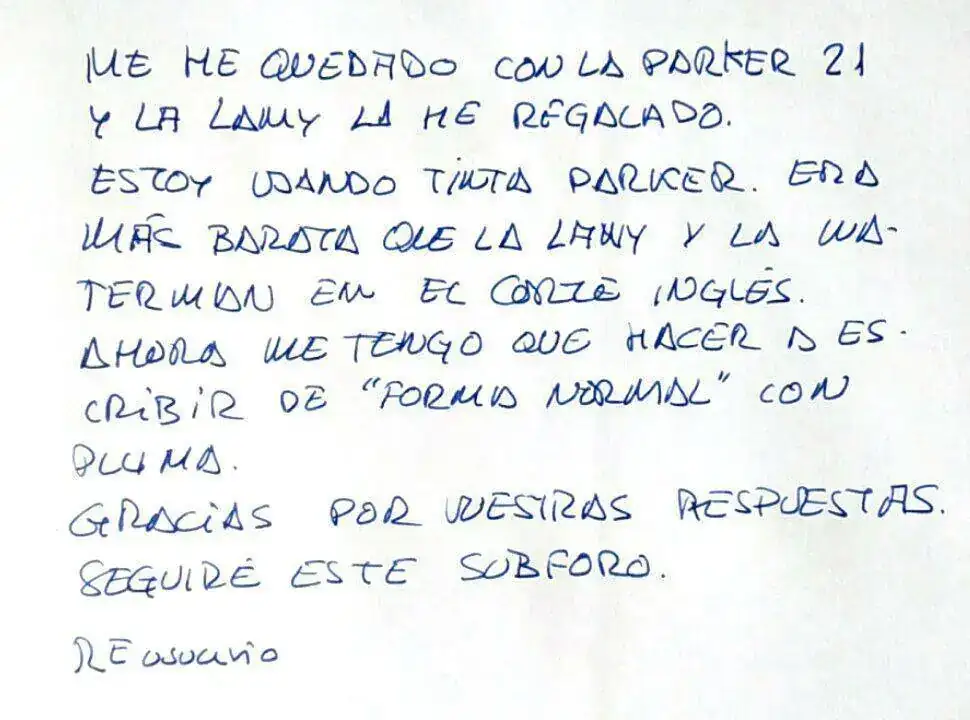 ME HE QUEDADO CON LA PARKER 21
Y LA LAMY LA HE REGALADO.
ESTOY USANDO TINTA PARKER. ERA
MÁS BARATA QUE LA LAMY Y LA WA-
TERMAN EN EL CORTE INGLÉS.
AHORA ME TENGO QUE HACER A ES-
CRIBIR DE "FORMA NORMAL" CON
PLUMA.
GRACIAS POR VUESTRAS RESPUESTAS.
SEGUIRÉ ESTE SUBFORO.
REusuario